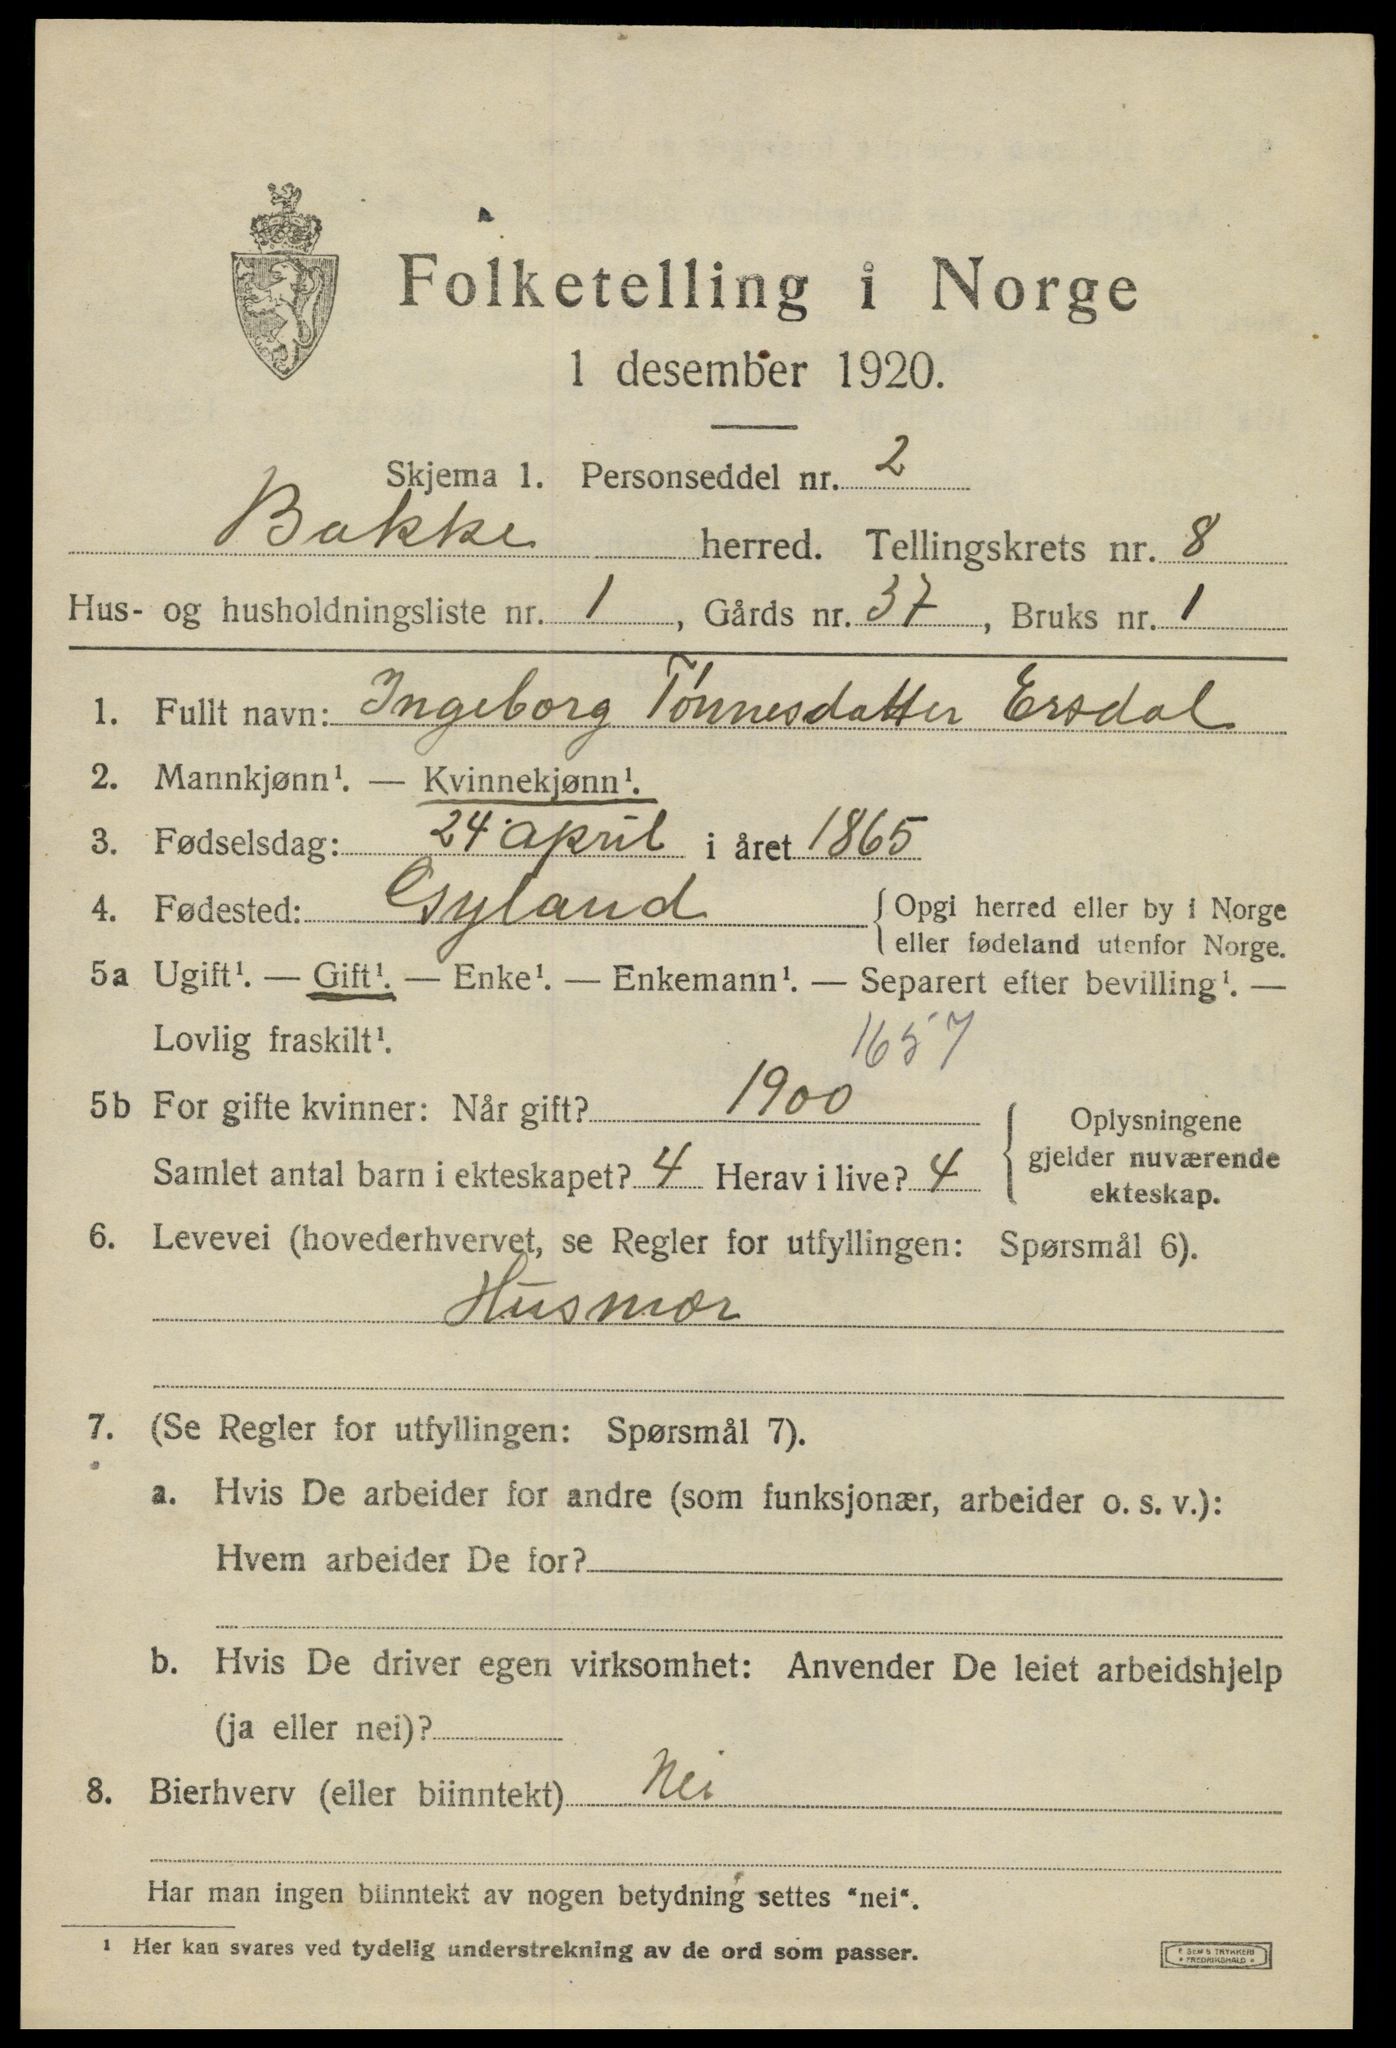 Folketelling i Norge
1 desember 1920.
Skjema 1. Personseddel nr. 2
Bakke herred. Tellingskrets nr. 8
Hus- og husholdningsliste nr. 1, Gårds nr. 37, Bruks nr. 1
1. Fullt navn: Ingeborg Tønnesdatter Ersdal
2. Mannkjønn¹. — Kvinnekjønn¹.
3. Fødselsdag: 24 april i året 1865
4. Fødested: Gyland {Opgi herred eller by i Norge
eller fødeland utenfor Norge.
5a Ugift¹. — Gift¹. — Enke¹. — Enkemann¹. — Separert efter bevilling¹. —
Lovlig fraskilt¹.
1657
5b For gifte kvinner: Når gift? 1900
Samlet antal barn i ekteskapet? 4 Herav i live? 4
{Oplysningene
gjelder nuværende
ekteskap.
6. Levevei (hovederhvervet, se Regler for utfyllingen: Spørsmål 6).
Husmor
7. (Se Regler for utfyllingen: Spørsmål 7).
a. Hvis De arbeider for andre (som funksjonær, arbeider o. s. v.):
Hvem arbeider De for?
b. Hvis De driver egen virksomhet: Anvender De leiet arbeidshjelp
(ja eller nei)?
8. Bierhverv (eller biinntekt) Nei
Har man ingen biinntekt av nogen betydning settes "nei".
¹ Her kan svares ved tydelig understrekning av de ord som passer.
E SEM'S TRYKKERI
• FREDRIKSHALD •